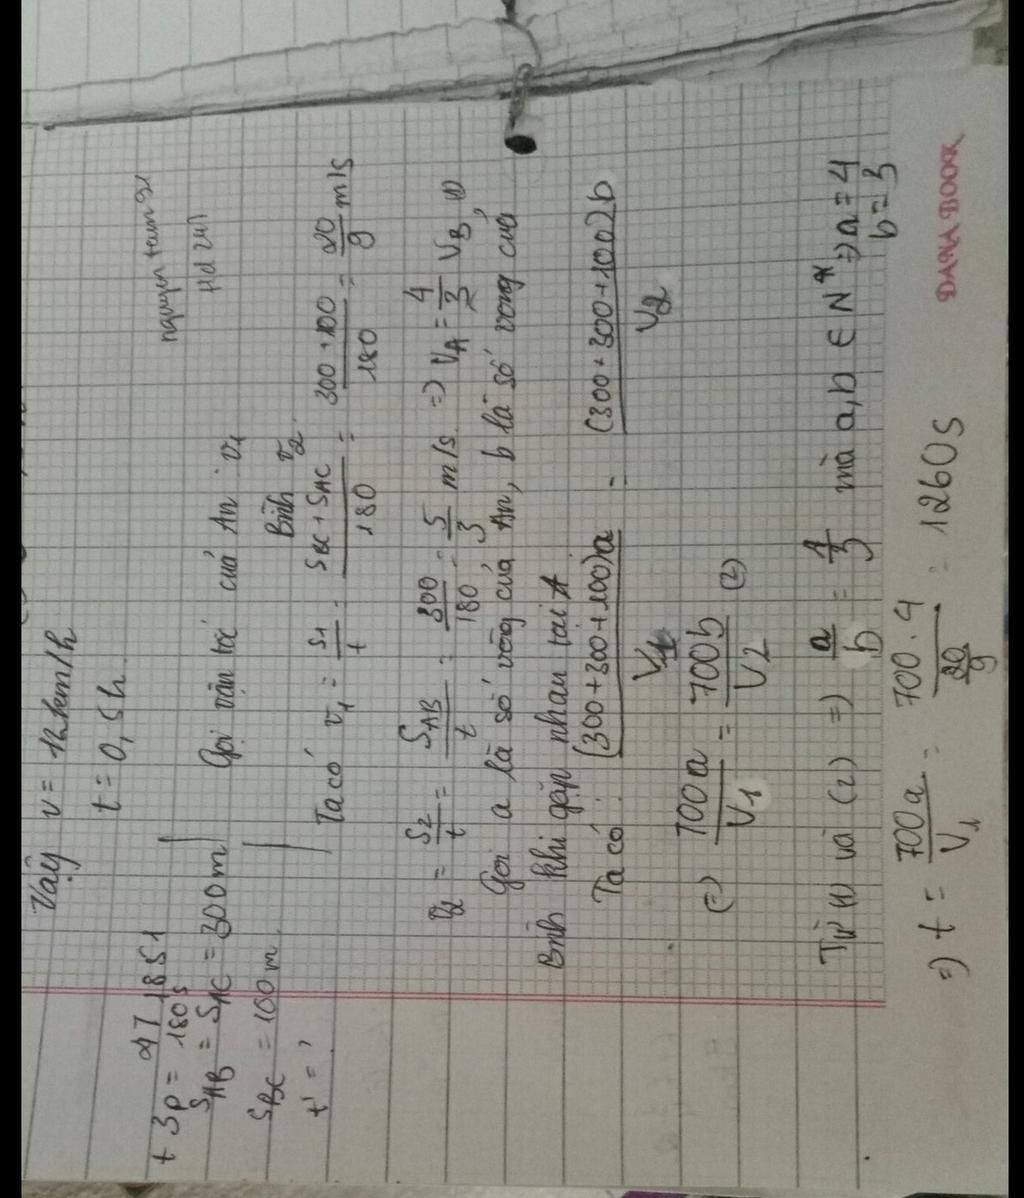 Vậy v = 12km/h
t = 0,5h
nguyen tam 92
Hd 241
t 3p = 180s
S_AB = S_AC = 300m
S_BC = 100m
t' = ?
Gọi vận tốc của An v₁
Bình v₂
Ta có v₁ = S1/t = (S_BC + S_AC)/180 = (300 + 100)/180 = 20/9 m/s
v₂ = S2/t = S_AB/t = 300/180 = 5/3 m/s => V_A = 4/3 V_B (1)
Gọi a là số vòng của An, b là số vòng của
Bình khi gặp nhau tại A
Ta có: (300+300+100)a/V1 = (300+300+100)2b/V2
(=) 700a/V1 = 700b/V2 (2)
Từ (1) và (2) =) a/b = 4/3 mà a,b ∈ N* => a = 4
b = 3
=) t = 700a/V1 = 700.4/(20/9) = 1260s
DANA BOOK